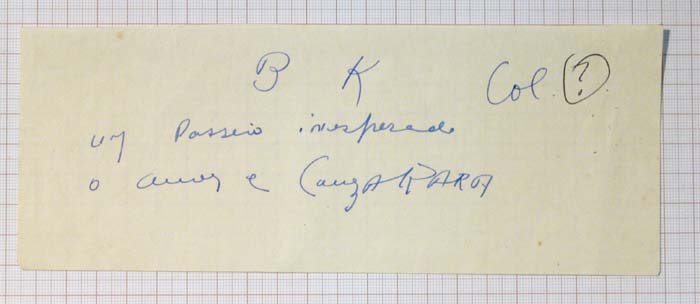 B K Col. ?
um Passeio inesperado
o amor e